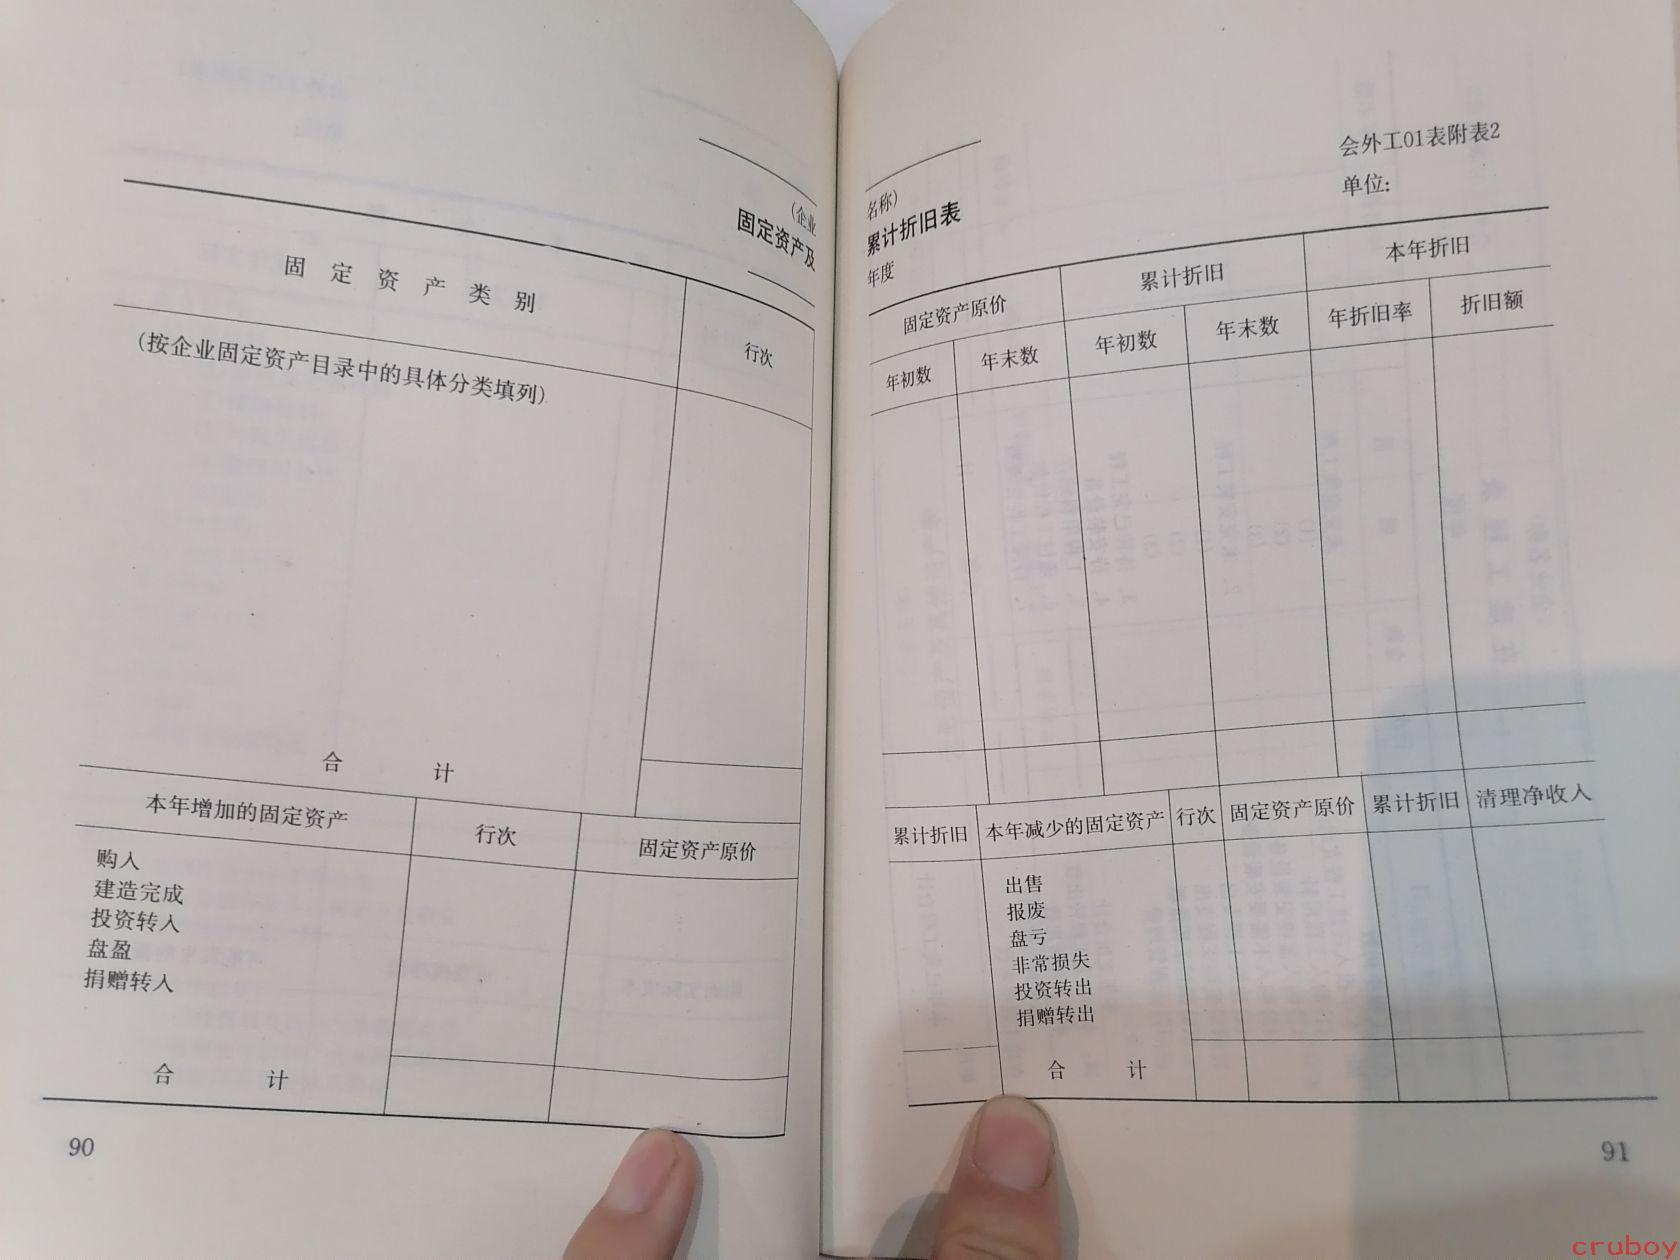 (企业
固定资产及
固定资产类别
行次
(按企业固定资产目录中的具体分类填列)
合 计
本年增加的固定资产 行次 固定资产原价
购入
建造完成
投资转入
盘盈
捐赠转入
合 计
90
会外工01表附表2
单位:
名称)
累计折旧表
年度
固定资产原价 累计折旧 本年折旧
年初数 年末数 年初数 年末数 年折旧率 折旧额
累计折旧 本年减少的固定资产 行次 固定资产原价 累计折旧 清理净收入
出售
报废
盘亏
非常损失
投资转出
捐赠转出
合 计
91
cruboy